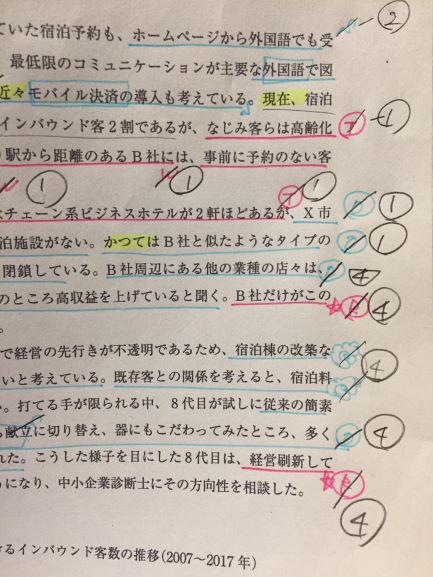 ていた宿泊予約も、ホームページから外国語でも受 ②
最低限のコミュニケーションが主要な外国語で図
近々モバイル決済の導入も考えている。現在、宿泊
インバウンド客2割であるが、なじみ客らは高齢化 T ①
駅から距離のあるB社には、事前に予約のない客
① ① ①
チェーン系ビジネスホテルが2軒ほどあるが、X市 T ①
泊施設がない。かつてはB社と似たようなタイプの ①
閉鎖している。B社周辺にある他の業種の店々は、 4
のところ高収益を上げていると聞く。B社だけがこの ④
。
で経営の先行きが不透明であるため、宿泊棟の改築な
いと考えている。既存客との関係を考えると、宿泊料 ④
い。打てる手が限られる中、8代目が試しに従来の簡素
献立に切り替え、器にもこだわってみたところ、多く ④
れた。こうした様子を目にした8代目は、経営刷新して
うになり、中小企業診断士にその方向性を相談した。
④
けるインバウンド客数の推移(2007〜2017年)